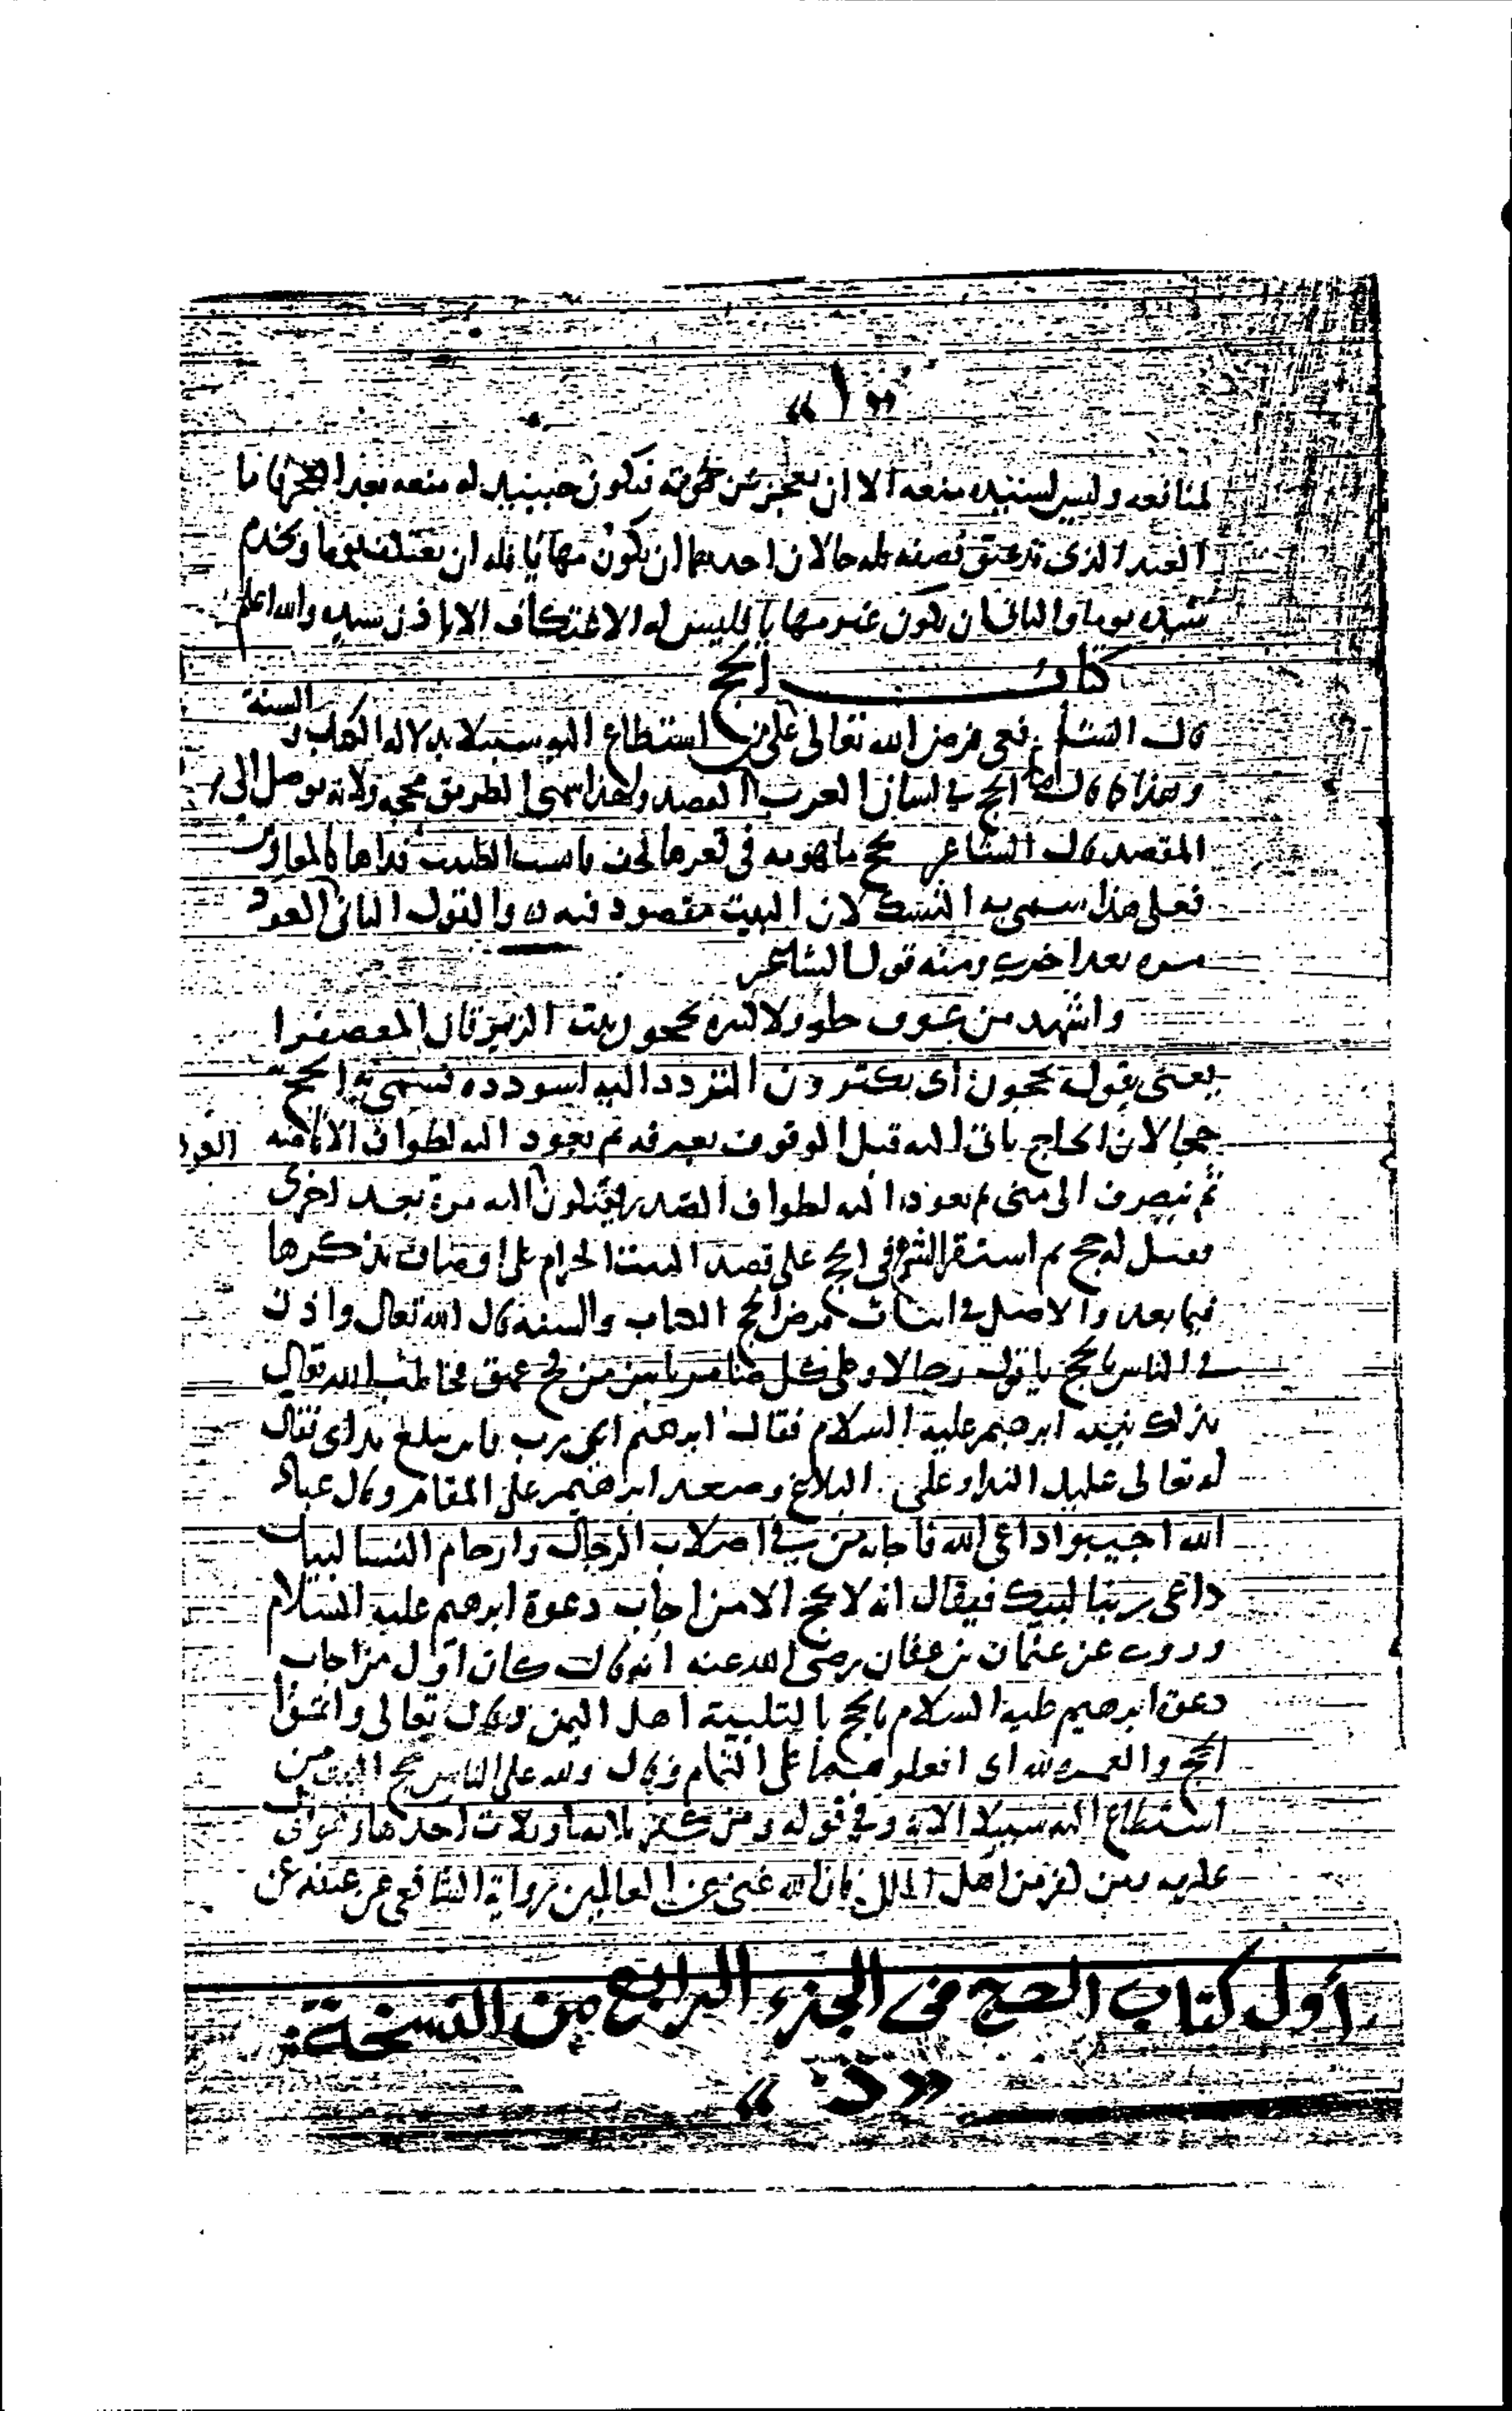 « ١ »
لمنافعه وليس لسيده منعه الا ان يعجز عن فيكون حينيذ له منعه بعد العجز فاما
العبد الذى قد عتق نصفه فله حالان احدهما ان يكون مهايا فله ان يعتكف يوما ويخدم
سيده يوما والثانى ان يكون غير مهايا فليس له الاعتكاف الا باذن سيده والله اعلم
كتاب الحج
قال الشافعى فرض الله تعالى الحج على من استطاع اليه سبيلا بدلالة الكتاب والسنة
وهذا كما قال الحج فى لسان العرب القصد ولهذا سمى الطريق محجه ولانه يوصل الى
المقصد قال الشاعر يحج مامومه فى قعرها لجف فاست الطبيب قذاها كالمغاريد
فعلى هذا سمى به النسك لان البيت مقصود فيه والقول الثانى العود
مره بعد اخرى ومنه قول الشاعر
واشهد من عوف حلولا كثيره يحجون بيت الزبرقان المعصفرا
يعنى بقوله يحجون اى يكثرون التردد اليه لسودده فسمى به الحج
حجا لان الحاج ياتى اليه قبل الوقوف بعرفه ثم يعود اليه لطواف الافاضه
ثم ينصرف الى منى ثم يعود اليه لطواف الصدر اليه مرة بعد اخرى
فقيل له حج ثم استقر الشرع فى الحج على قصد البيت الحرام على اوصاف نذكرها
فيما بعد والاصل فى اثبات فرض الحج الكتاب والسنة قال الله تعالى واذن
فى الناس بالحج ياتوك رجالا وعلى كل ضامر ياتين من فج عميق فخاطب الله تعالى
بذلك نبيه ابرهيم عليه السلام فقال ابرهيم اى رب فاين يبلغ نداى فقال
له تعالى عليك الندا وعلى البلاغ وصعد ابرهيم على المقام وقال عباد
الله اجيبوا داعى الله فاجابه من فى اصلاب الرجال وارحام النسا لبيك
داعى ربنا لبيك فيقال انه لا يحج الا من اجاب دعوة ابرهيم عليه السلام
وروى عن عثمان بن عفان رضى الله عنه انه قال كان اول من اجاب
دعوة ابرهيم عليه السلام بالحج بالتلبية اهل اليمن وقال تعالى واتموا
الحج والعمره لله اى افعلوهما على التمام وقال ولله على الناس حج البيت من
استطاع اليه سبيلا الاية وفى قوله ومن كفر ثلاثة تاويلات احدها
من كفر من اهل الملل فان الله غنى عن العالمين رواية الشافعى عن عن
أول كتاب الحج فى الجزء الرابع من النسخة:
« ث »